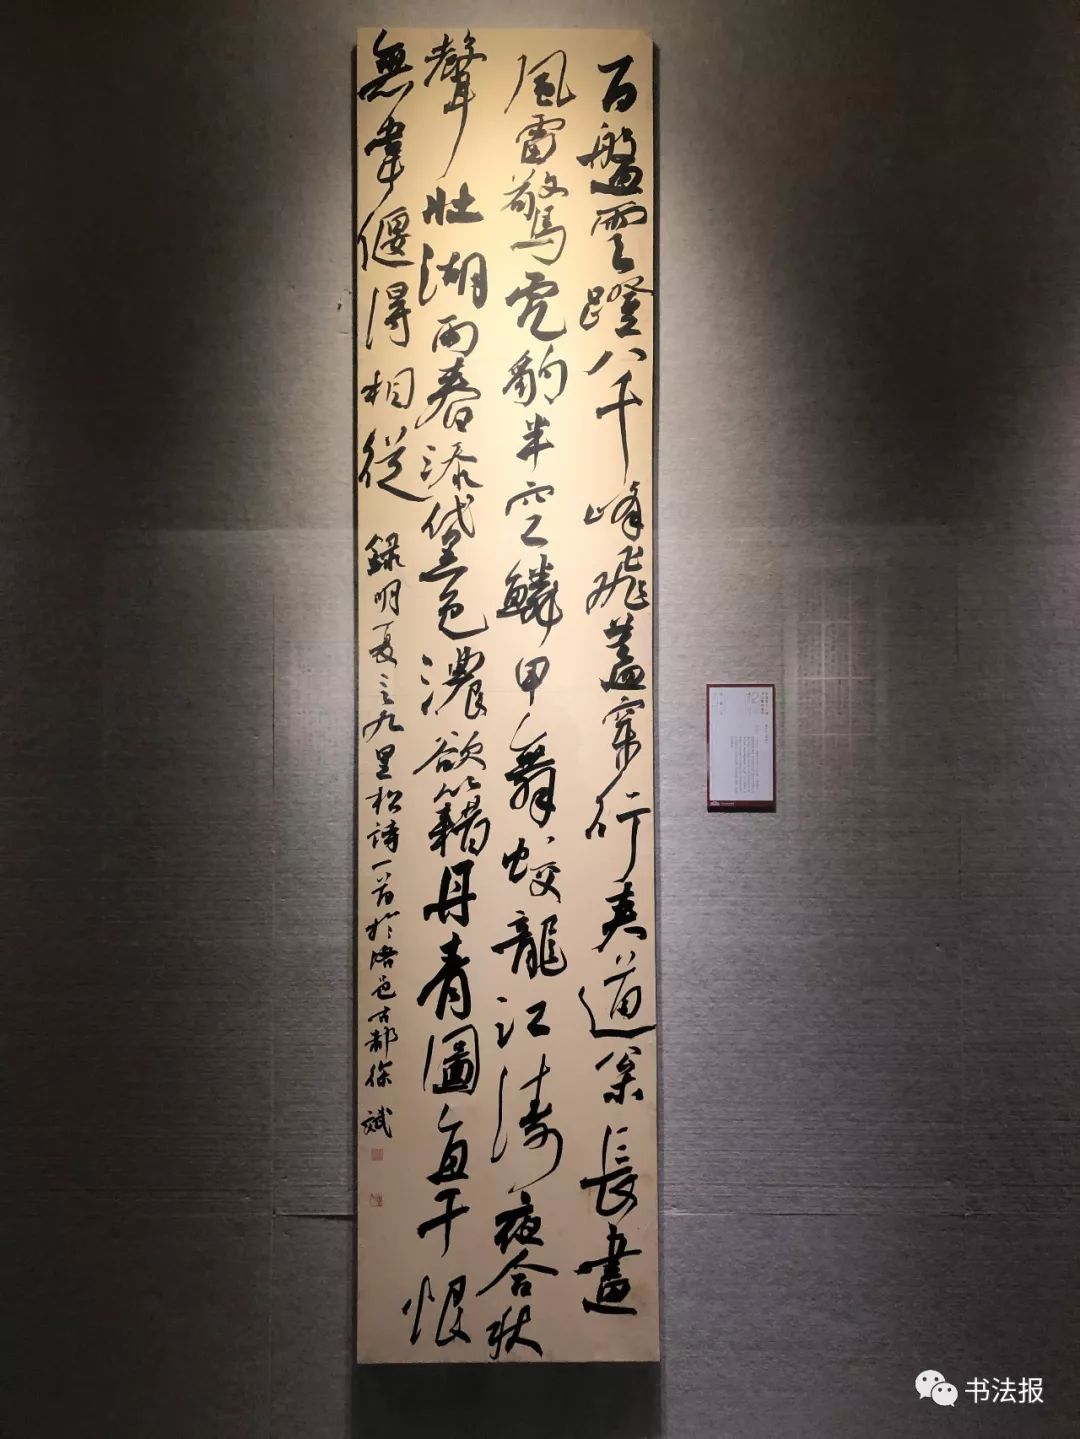 百盤雲蹬八千峰飛蓋穿行夾道枀長晝
風雷驚虎豹半空鱗甲舞蛟龍江濤夜合秋
聲壯湖雨春添黛色濃欲籍丹青圖直干恨
無韋偃得相從
錄明夏言九里松詩一首於洛邑古都徐斌
书法报